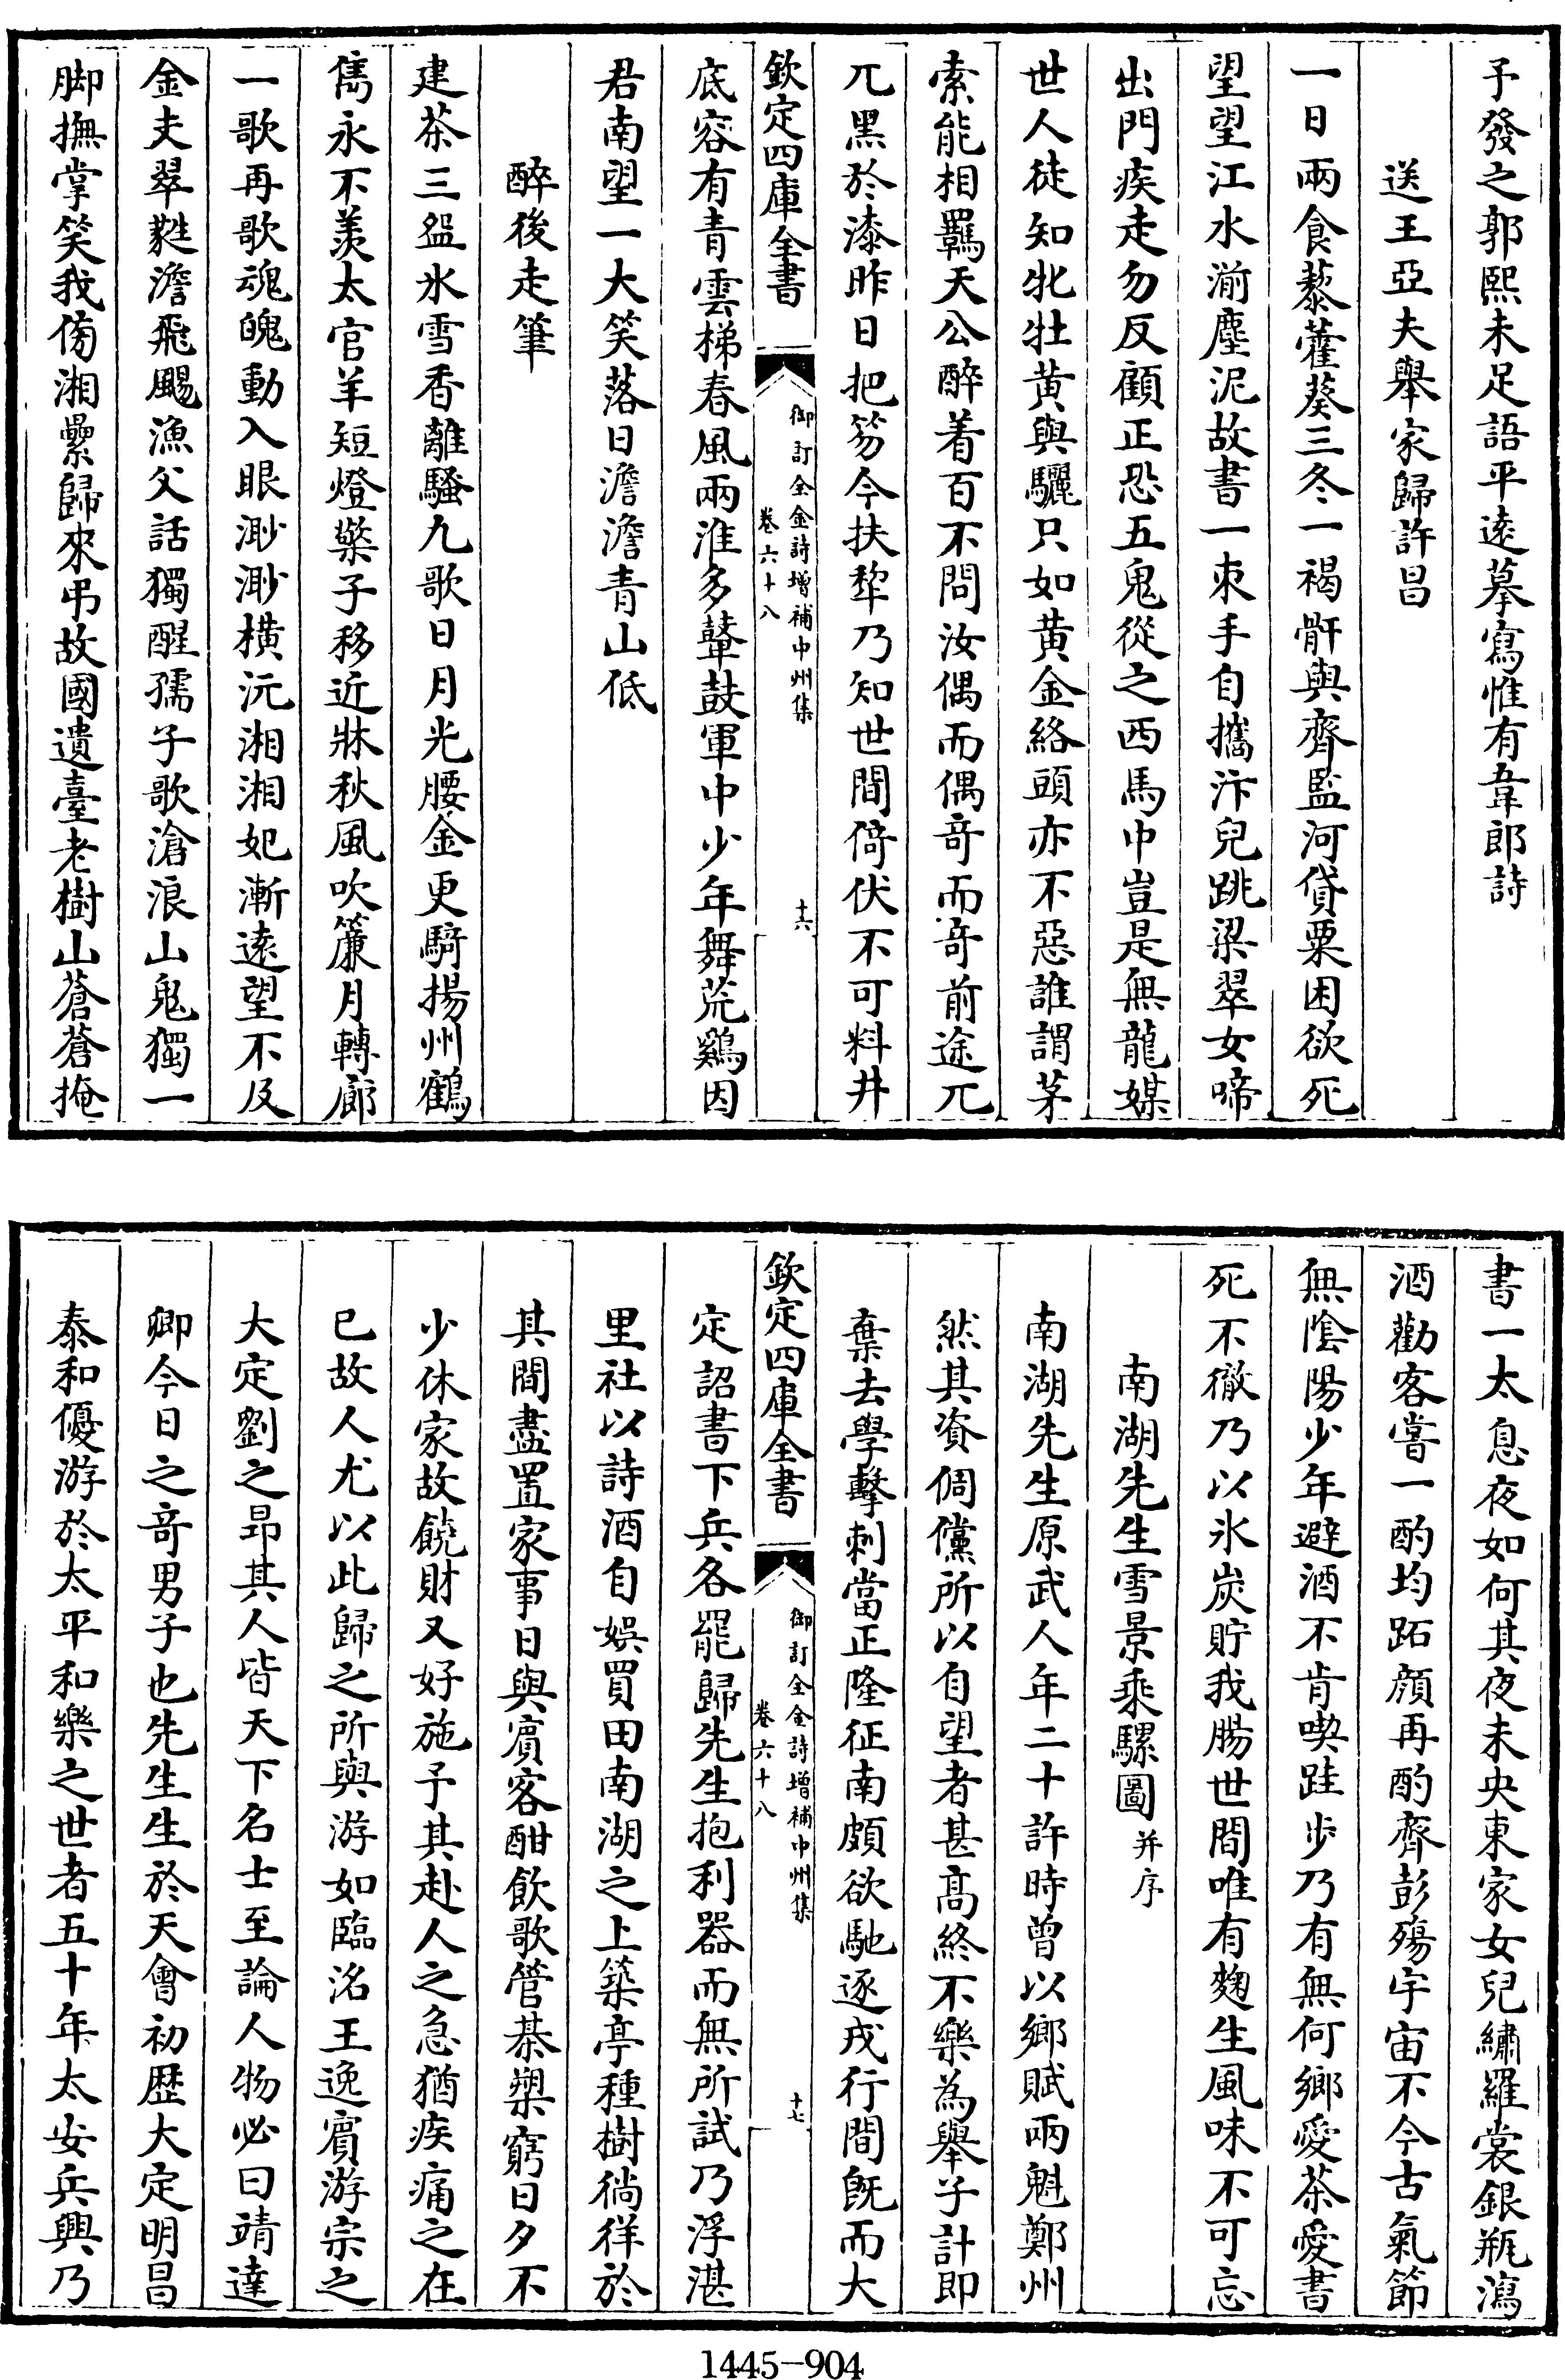 予發之郭熙未足語平逺摹寫惟有韋郎詩
送王亞夫舉家歸許昌
一日兩食藜藿葵三冬一褐骭與齊監河貸粟困欲死
望望江水湔塵泥故書一束手自攜汴兒跳梁翠女啼
出門疾走勿反顧正恐五鬼從之西馬巾豈是無龍媒
世人徒知牝牡黄與驪只如黄金絡頭亦不惡誰謂茅
索能相羈天公醉着百不問汝偶而偶奇而奇前途兀
兀黑於漆昨日把笏今扶犂乃知世間倚伏不可料井
欽定四庫全書
御訂全金詩增補中州集
卷六十八
十六
底容有青雲梯春風兩淮多鼙鼓軍中少年舞荒鷄因
君南望一大笑落日澹澹青山低
醉後走筆
建茶三盌氷雪香離騷九歌日月光腰金更騎揚州鶴
雋永不羨太官羊短燈檠子移近牀秋風吹簾月轉廊
一歌再歌魂魄動入眼渺渺横沅湘湘妃漸逺望不及
金支翠蕤澹飛颺漁父話獨醒孺子歌滄浪山鬼獨一
脚撫掌笑我傍湘纍歸來弔故國遺臺老樹山蒼蒼掩
書一太息夜如何其夜未央東家女兒繡羅裳銀瓶瀉
酒勸客嘗一酌均跖顔再酌齊彭殤宇宙不今古氣節
無隂陽少年避酒不肯喫跬步乃有無何鄉愛茶愛書
死不徹乃以氷炭貯我腸世間唯有麴生風味不可忘
南湖先生雪景乘騾圖并序
南湖先生原武人年二十許時曾以鄉賦兩魁鄭州
然其資倜儻所以自望者甚髙終不樂為舉子計即
棄去學擊刺當正隆征南頗欲馳逐戎行間既而大
欽定四庫全書
御訂全金詩增補中州集
卷六十八
十七
定詔書下兵各罷歸先生抱利器而無所試乃浮湛
里社以詩酒自娯買田南湖之上築亭種樹徜徉於
其間盡置家事日與賓客酣飲歌管棊槊窮日夕不
少休家故饒財又好施予其赴人之急猶疾痛之在
已故人尤以此歸之所與游如臨洺王逸賓游宗之
大定劉之昂其人皆天下名士至論人物必曰靖達
卿今日之奇男子也先生生於天會初歴大定明昌
泰和優游於太平和樂之世者五十年太安兵興乃
1445-904